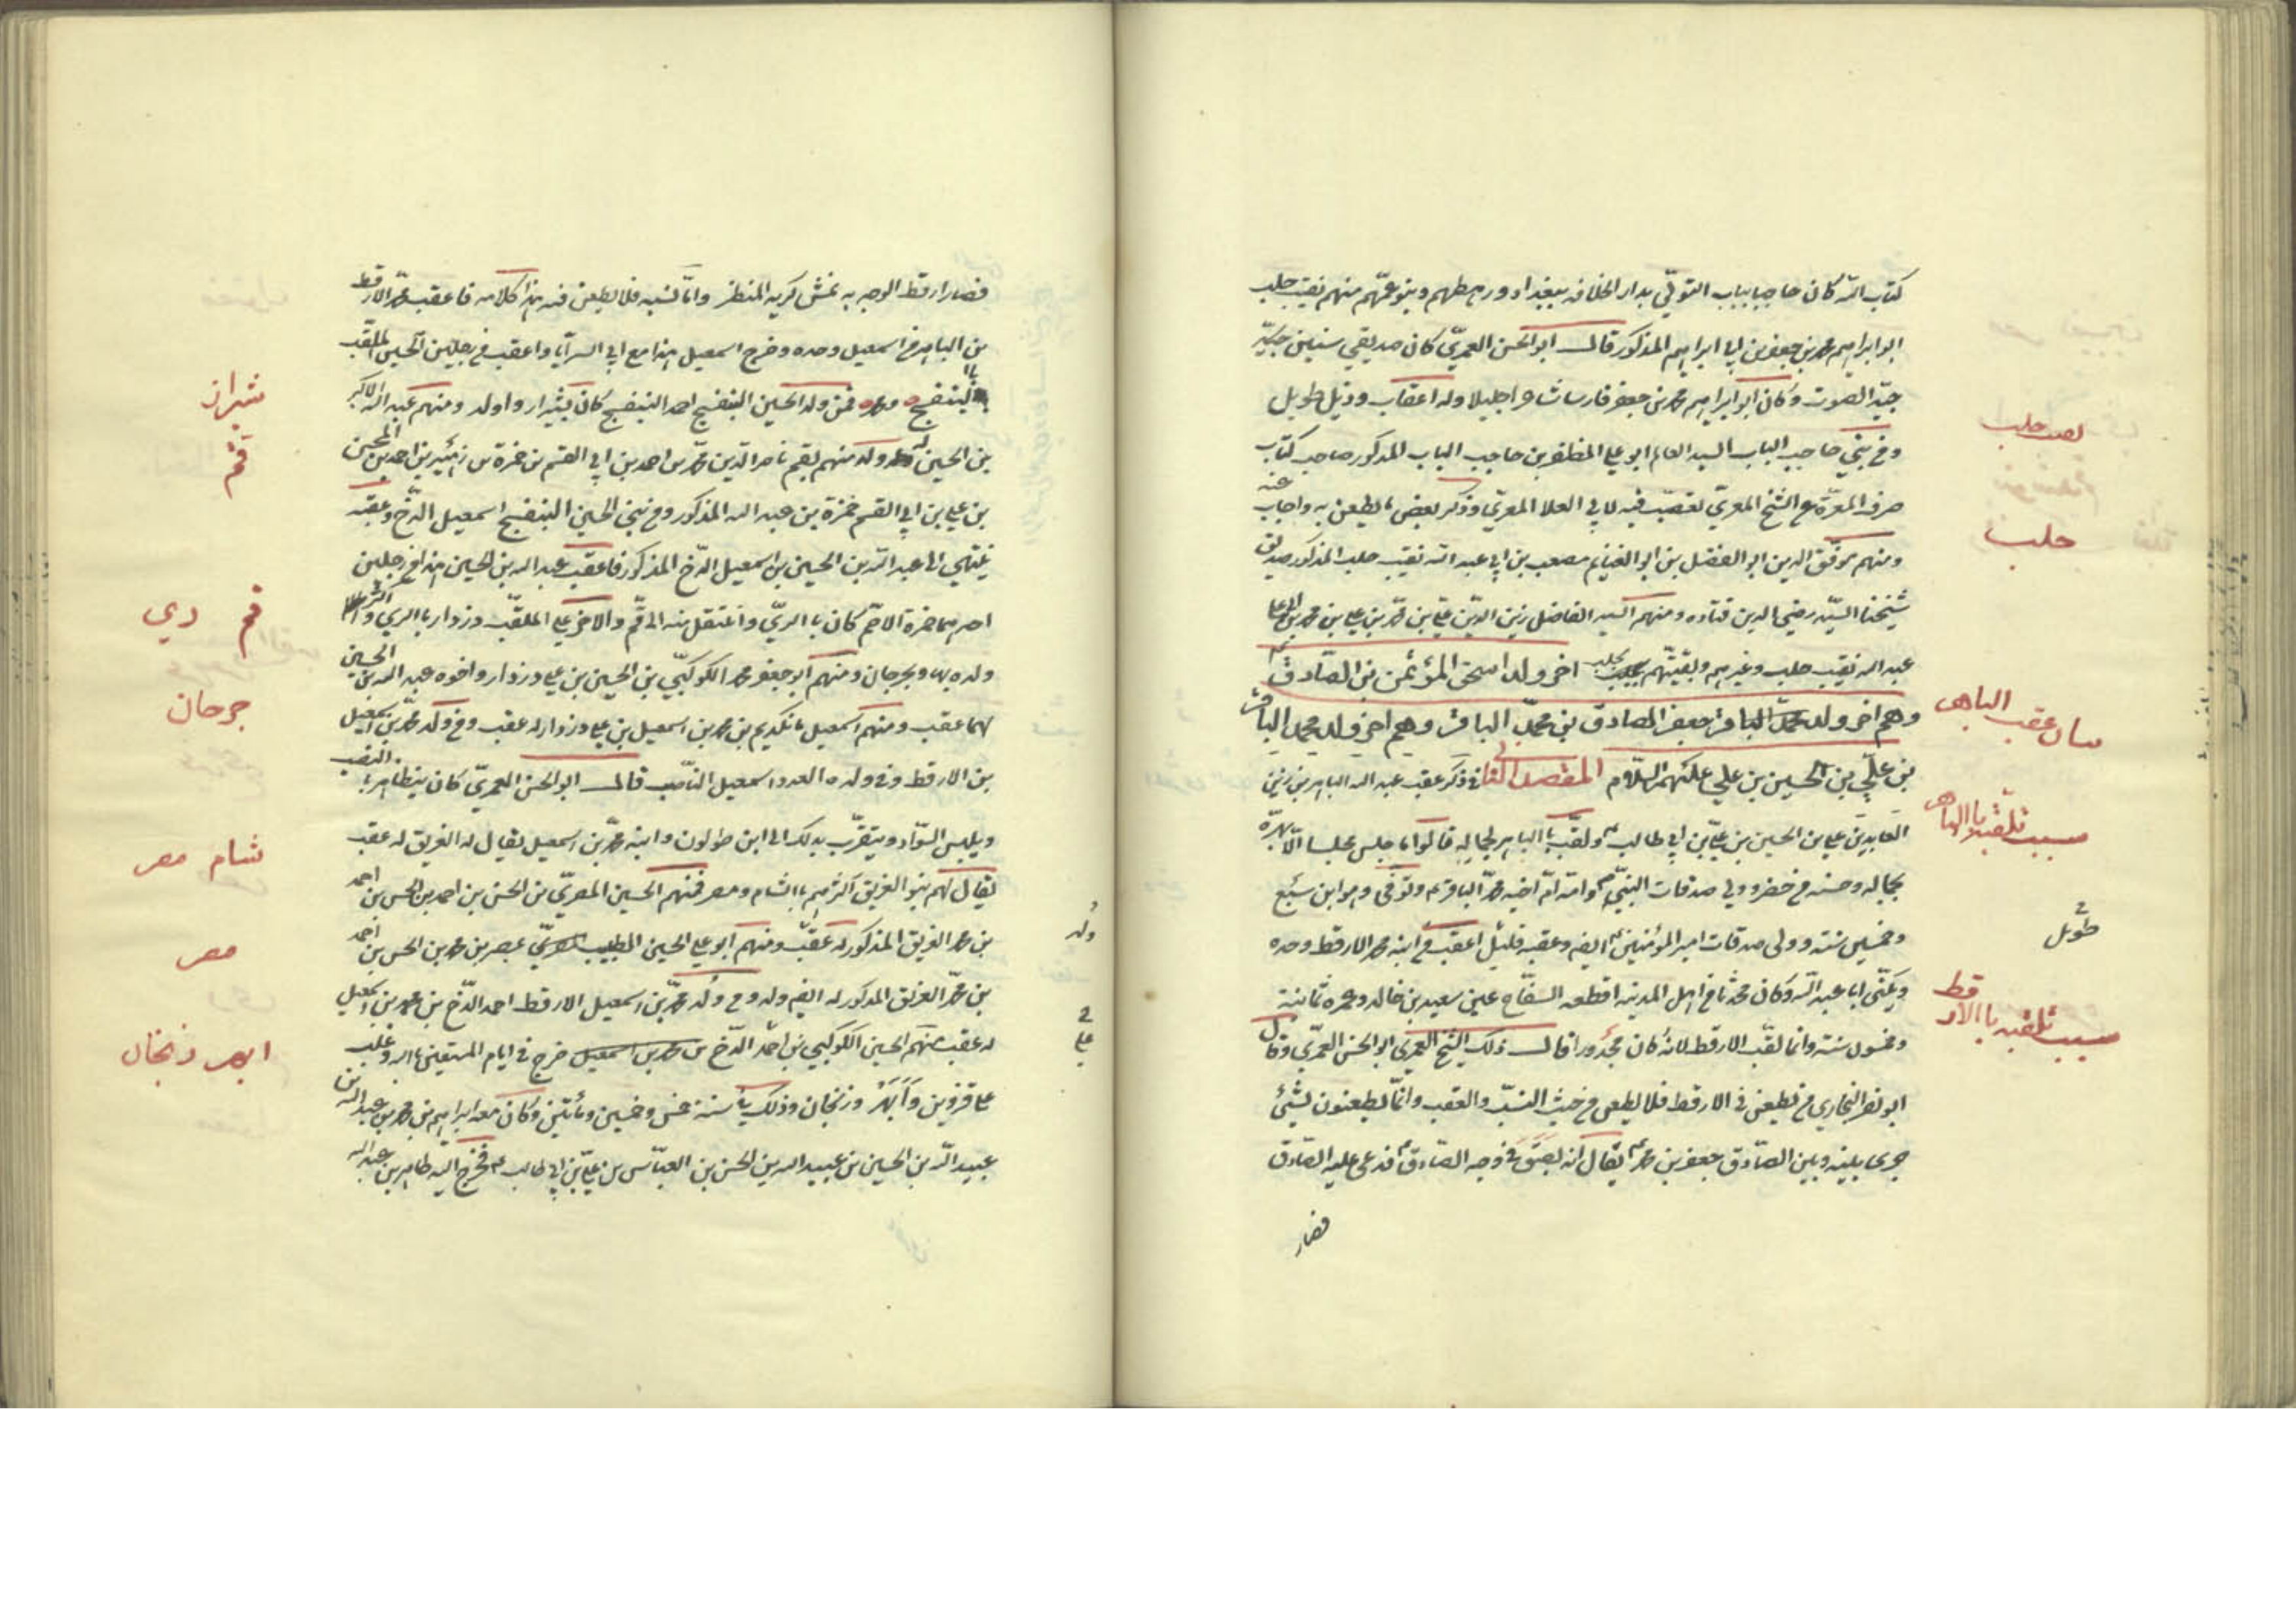 كتاب الله كان حاجبا بباب التوبي بدار الخلافه ببغداد ورهطهم وبنو عمهم منهم نقيب حلب
ابو ابراهيم محمد بن جعفر بن ابي ابراهيم المذكور قال ابو الحسن العمري كان صديقي
جيد الصوت وكان ابو ابراهيم محمد بن جعفر فارسا شاعرا جليلا وله اعقاب وذيل طويل
وفي بني حاجب الباب السيد العالم ابو علي المظفر بن حاجب الباب المذكور صاحب كتاب
صرف المعرة عن الشيخ المعري تعصب فيه لابي العلا المعري وذكر بعض ما يطعن به واجاب عنه
ومنهم موفق الدين ابو الفضل بن ابو الغنايم مصعب بن ابي عبد الله نقيب حلب المذكور صديق
شيخنا السيد رضي الدين قتاده ومنهم السيد الفاضل زين الدين علي بن محمد بن علي بن محمد بن
عبد الله نقيب حلب وغيرهم وبقيتهم بحلب اخر ولد اسحق المؤتمن بن الصادق
وهم اخر ولد جعفر الصادق بن محمد الباقر وهم اخر ولد محمد الباقر
بن علي بن الحسين بن علي عليهم السلام المقصد الثاني في ذكر عقب عبد الله الباهر بن زين
العابدين علي بن الحسين بن علي بن ابي طالب ولقب باالباهر لجماله قالوا ما جلس مجلسا الا بهره
بجماله وحسنه من حضر وولي صدقات النبي وامه ام اخيه محمد الباقر وتوفي وهو ابن سبع
وخمسين سنه وولى صدقات امير المؤمنين ايضا وعقبه قليل اعقب من ابنه محمد الارقط وحده
ويكنى ابا عبد الله وكان محدثا من اهل المدينه اقطعه السفاح عين سعيد بن خالد وعمره ثمانية
وخمسون سنه وانما لقب الارقط لانه كان مجدورا قال ذلك الشيخ العمري ابو الحسن العمري وقال
ابو نصر البخاري من يطعن في الارقط فلا يطعن من حيث النسب والعقب وانما يطعنون لشئ
جرى بينه وبين الصادق جعفر بن محمد يقال انه بصق في وجه الصادق فدعى عليه الصادق
فصار
حلب
بيان عقب الباهر
سبب تلقبه باالباهر
سبب تلقبه باالارقط
فصار ارقط الوجه به نمش كريه المنظر واما نسبه فلا يطعن فيه هذا كلامه فاعقب محمد الارقط
بن الباهر من اسمعيل وحده وخرج اسمعيل هذا مع ابي السرايا واعقب من رجلين الحسين الملقب
بالبنفسج ومحمد فمن ولد الحسين البنفسج احمد البنفسج كان بشيراز واولد ومنهم عبد الله الاكبر
بن الحسين له ولد منهم بقم ناصر الدين محمد بن احمد بن ابي القسم بن حمزة بن
بن علي بن ابي القسم حمزة بن عبد الله المذكور ومن بني الحسين البنفسج اسمعيل الدخ وعقبه
ينتهي الى عبد الله بن الحسين بن اسمعيل الدخ المذكور فاعقب عبد الله بن الحسين هذا من رجلين
احدهما حمزة الاصم كان باالري وانتقل منه الى قم والاخر علي الملقب وزدار باالري
ولده بها وبجرجان ومنهم ابو جعفر محمد الكوكبي بن الحسين بن علي وزدار واخوه عبد الله بن الحسين
لهما عقب ومنهم اسمعيل مانكديم بن محمد بن اسمعيل بن علي وزدار له عقب ومن ولد محمد بن اسمعيل
بن الارقط وفي ولده العدد اسمعيل الناصب قال ابو الحسن العمري كان يتظاهر باالنصب
ويلبس السواد ويتقرب بذلك الى ابن طولون وابنه محمد بن اسمعيل يقال له الغريق له عقب
يقال لهم بنو الغريق اكثرهم باالشام ومصر فمنهم الحسين المصري بن الحسن بن احمد بن الحسن بن احمد
بن محمد الغريق المذكور له عقب ومنهم ابو علي الحسين الطبيب بمصر بن محمد بن الحسن بن احمد
بن محمد الغريق المذكور له ايضا ولد ومن ولد محمد بن اسمعيل الارقط احمد الدخ بن محمد بن اسمعيل
له عقب منهم الحسين الكوكبي بن احمد الدخ بن محمد بن اسمعيل خرج في ايام المستعين باالله وغلب
على قزوين وابهر وزنجان وذلك سنة خمس وخمسين ومأتين وكان معه ابراهيم بن محمد بن عبد الله بن
عبيد الله بن الحسين بن عبيد الله بن الحسن بن العباس بن علي بن ابي طالب فخرج اليه طاهر بن عبد الله
شيراز
قم
قم ري
جرجان
شام مصر
مصر
ابهر زنجان
ولد